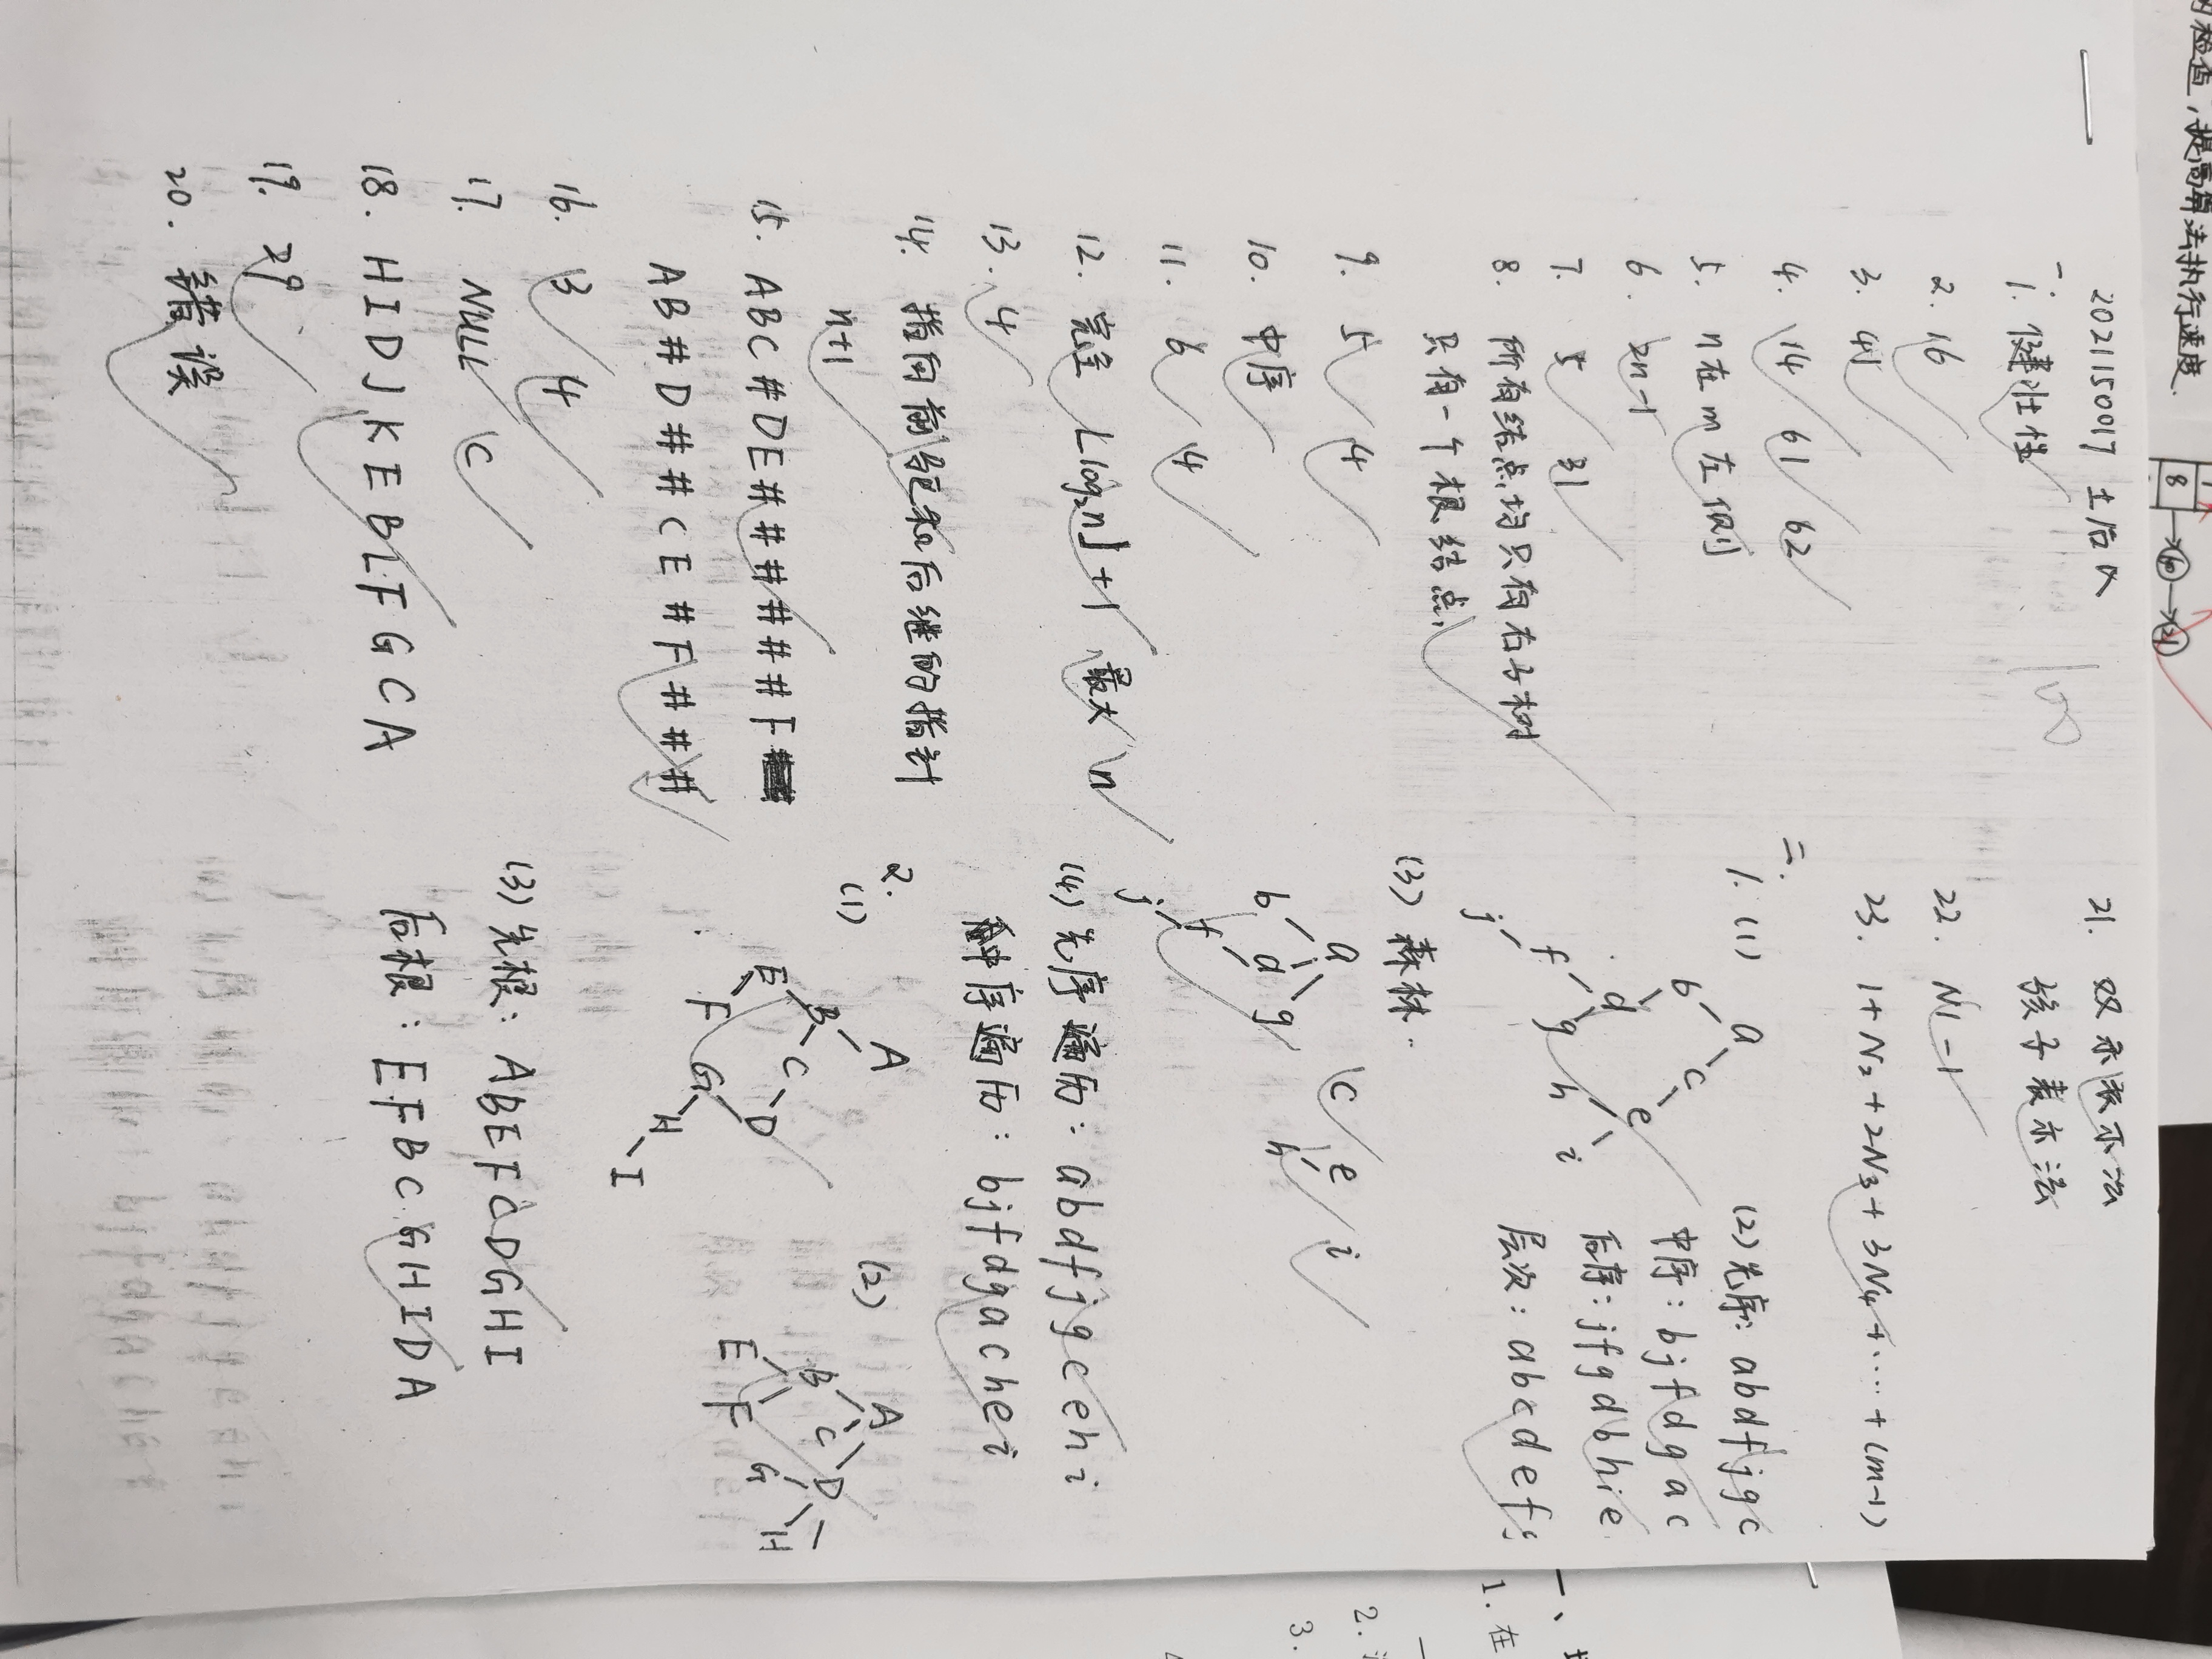 的检查,提高算法执行速度.
8 → 60 → 21
2021150017
100
一.
1. 健壮性
2. 16
3. 41
4. 14 61 62
5. n在m左侧
6. 2n-1
7. 5 31
8. 所有结点均只有右子树
只有一个根结点
9. 5 4
10. 中序
11. 6 4
12. 完全 ⌊log₂n⌋+1 最大 n
13. 4
14. 指向前驱和后继的指针
n+1
15. ABC#DE######F
AB#D##CE#F###
16. 3 4
17. NULL C
18. HIDJKEBLFGCA
19. 29
20. 错误
21. 双亲表示法
孩子表示法
22. N1-1
23. 1+N₂+2N₃+3N₄+····+(m-1)
二.
1. (1)
a
b c
d e
f g h i
j
(2) 先序: abdfjgc
中序: bjfdgac
后序: jfgdbhie
层次: abcdef
(3) 森林
a c e i
b d g h
f
j
(4) 先序遍历: abdfjgcehi
中序遍历: bjfdgachei
2.
(1)
A
B
E C
F D
G
H
I
(2)
A
B C D
E F G H
(3) 先根: ABEFCDGHI
后根: EFBCGHIDA
一、
1. 在
2.
3.